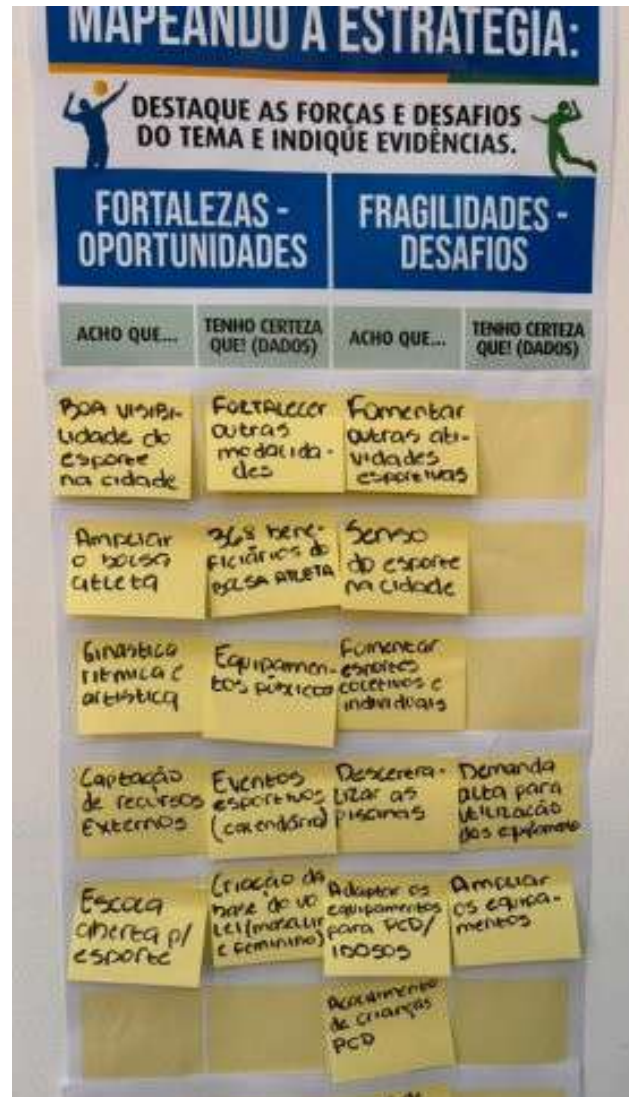 MAPEANDO A ESTRATÉGIA:
DESTAQUE AS FORÇAS E DESAFIOS
DO TEMA E INDIQUE EVIDÊNCIAS.
FORTALEZAS -
OPORTUNIDADES
FRAGILIDADES -
DESAFIOS
ACHO QUE...
TENHO CERTEZA
QUE! (DADOS)
ACHO QUE...
TENHO CERTEZA
QUE! (DADOS)
BOA VISIBI-
LIDADE do
esporte
na cidade
FORTALECER
outras
modalida-
des
Fomentar
outras ati-
vidades
esportivas
Ampliar
o bolsa
atleta
368 bene-
ficiários do
BOLSA ATLETA
Senso
do esporte
na cidade
Ginástica
rítmica e
artística
Equipamen-
tos públicos
Fomentar
esportes
coletivos e
individuais
Captação
de recursos
Externos
Eventos
esportivos
(calendário)
Descentra-
lizar as
piscinas
Demanda
alta para
utilização
dos
Escola
aberta p/
esporte
Criação da
base do vo
lei (masculin
e feminino)
Adaptar os
equipamentos
para PCD/
IDOSOS
Ampliar
os equipa-
mentos
de crianças
PCD